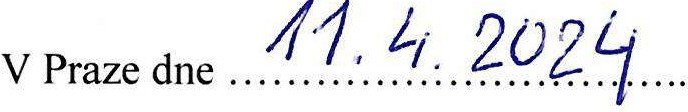 V Praze dne 11. 4. 2024